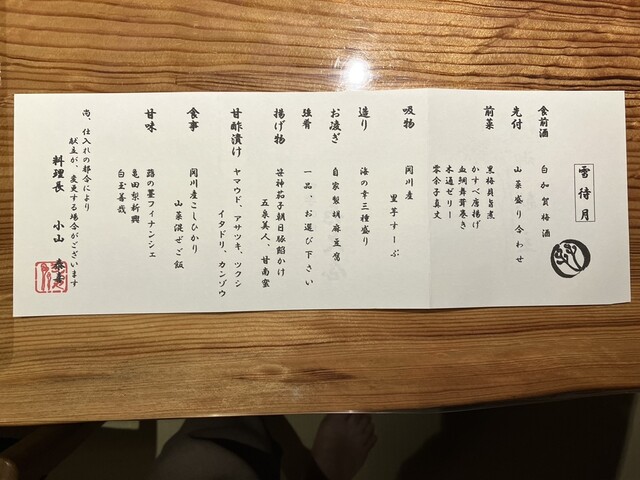 雪待月
食前酒
白加賀梅酒
先付
山菜盛り合わせ
前菜
黒梅貝旨煮
かすべ唐揚げ
血鯛舞茸巻き
木通ゼリー
零余子真丈
吸物
関川産
里芋すーぷ
造り
海の幸三種盛り
お凌ぎ
自家製胡麻豆腐
強肴
一品、お選び下さい
揚げ物
笹神茄子朝日豚餡かけ
五泉美人、甘南蛮
甘酢漬け
ヤマウド、アサツキ、ツクシ
イタドリ、カンゾウ
食事
関川産こしひかり
山菜混ぜご飯
甘味
蕗の薹フィナンシェ
亀田梨新興
白玉善哉
尚、仕入れの都合により
献立が、変更する場合がございます
料理長 小山